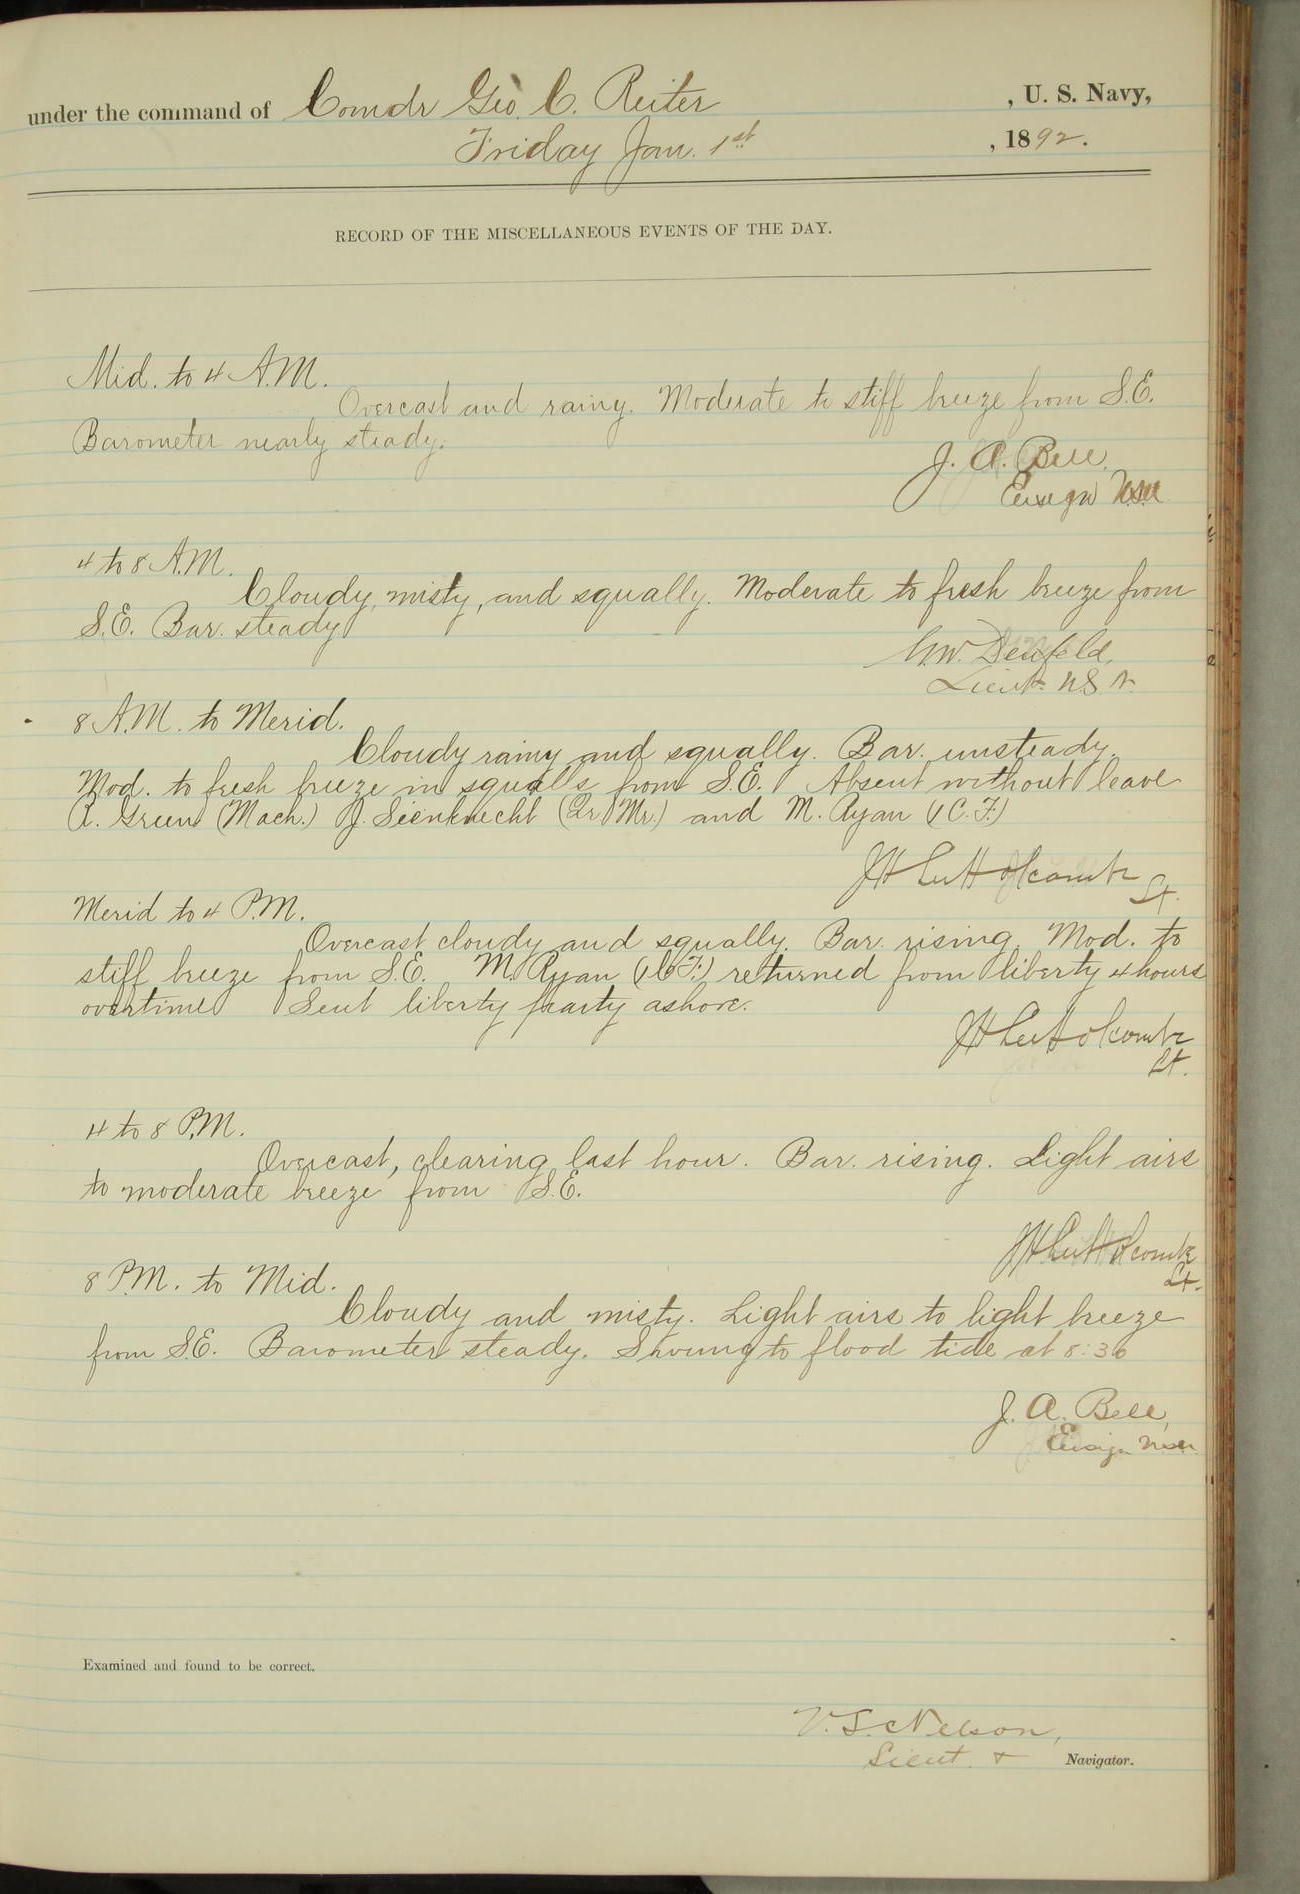 under the command of Comdr Geo. C. Reiter , U. S. Navy,
Friday Jan. 1st , 1892.
RECORD OF THE MISCELLANEOUS EVENTS OF THE DAY.
Mid. to 4 A.M.
Overcast and rainy. Moderate to stiff breeze from S.E.
Barometer nearly steady.
J. A. Bell,
Ensign USN
4 to 8 A.M.
Cloudy, misty, and squally. Moderate to fresh breeze from
S.E. Bar. steady
G.W. Denfeld,
Lieut. U.S.N.
8 A.M. to Merid.
Cloudy rainy and squally. Bar. unsteady.
Mod. to fresh breeze in squalls from S.E. Absent without leave
A. Green (Mach.) J. Sienknecht (Qr Mr.) and M. Ryan (1 C. F.)
JH Lee Holcombe
Lt.
Merid to 4 P.M.
Overcast cloudy and squally. Bar. rising. Mod. to
stiff breeze from S.E. M. Ryan (1 C. F.) returned from liberty 4 hours
overtime Sent liberty party ashore.
JH Lee Holcombe
Lt.
4 to 8 P.M.
Overcast, clearing last hour. Bar. rising. Light airs
to moderate breeze from S.E.
JH Lee Holcombe
Lt.
8 P.M. to Mid.
Cloudy and misty. Light airs to light breeze
from S.E. Barometer steady. Swung to flood tide at 8:30
J. A. Bell,
Ensign USN
Examined and found to be correct.
V. S. Nelson,
Lieut. & Navigator.